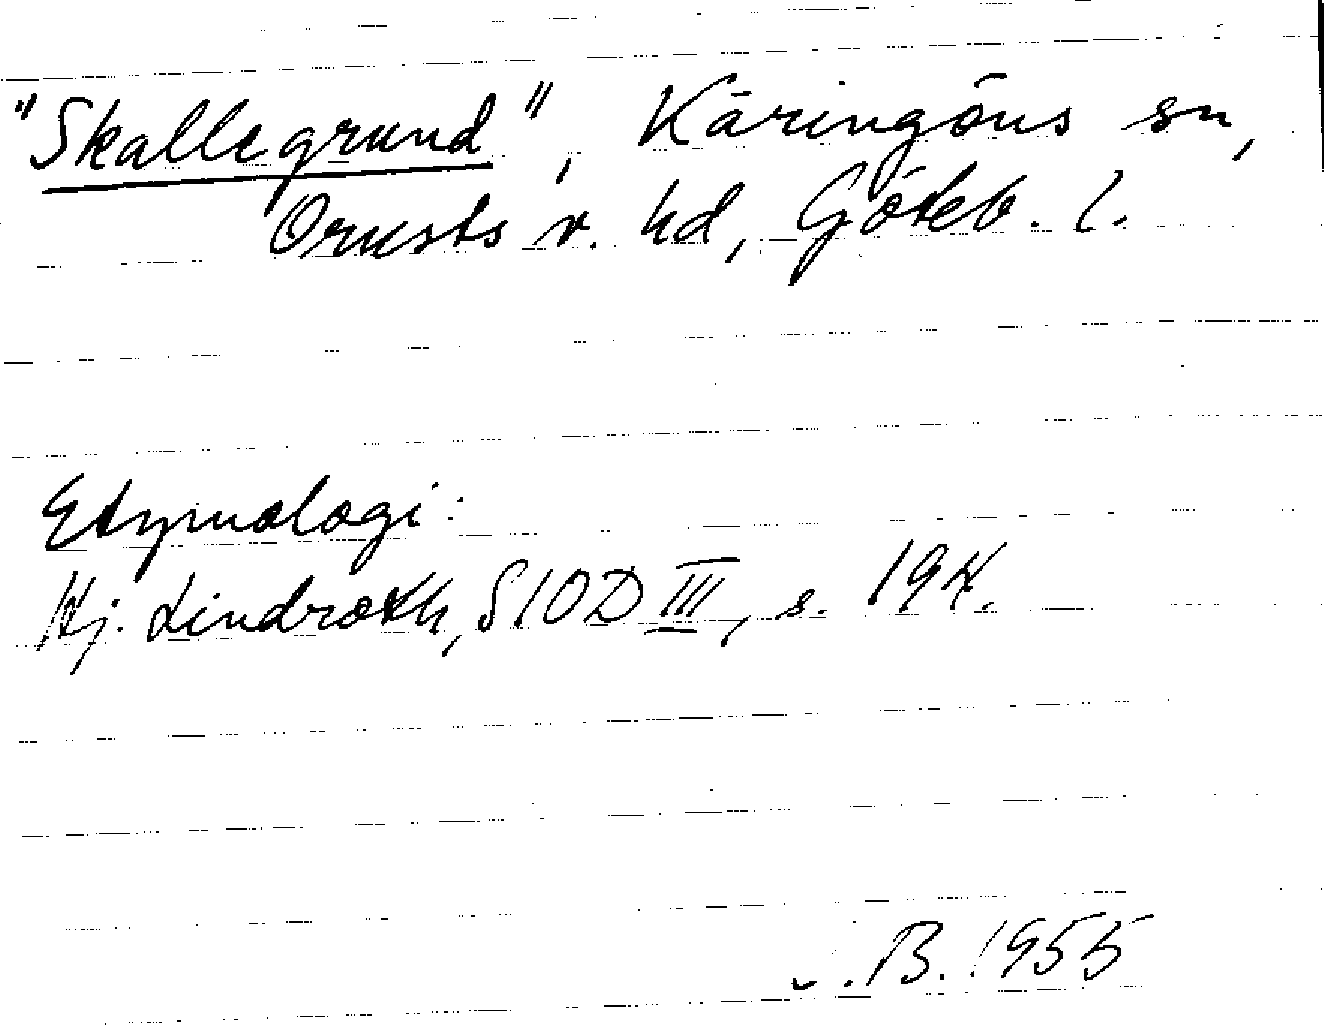 "Skallegrund", Käringöns sn,
Orusts v. hd, Göteb. l.
Etymologi:
Hj. Lindroth, SIOD III, s. 194.
B. 1955